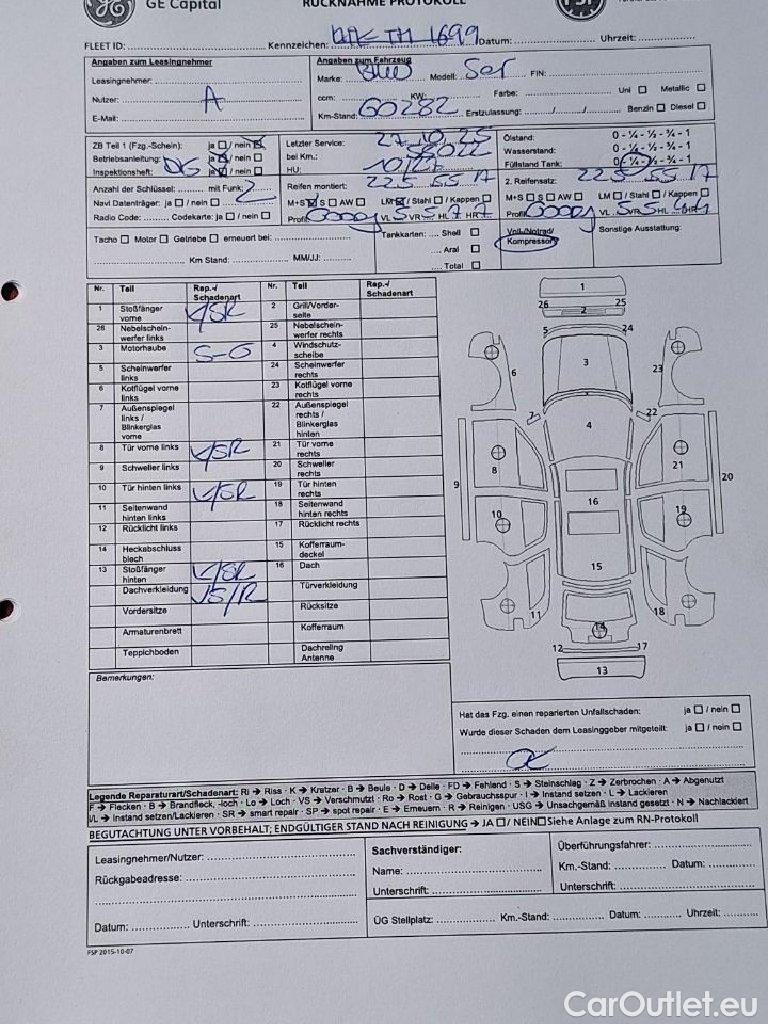 GE Capital
RÜCKNAHME PROTOKOLL
FLEET ID: Kennzeichen: TM 1699 Datum: Uhrzeit:
Angaben zum Leasingnehmer
Leasingnehmer:
Nutzer: A
E-Mail:
Angaben zum Fahrzeug
Marke: Modell: 5er FIN:
ccm: KW: Farbe: Uni Metallic
Km-Stand: 60282 Erstzulassung: / / Benzin Diesel
ZB Teil 1 (Fzg.-Schein): ja / nein
Betriebsanleitung: ja / nein
Inspektionsheft: ja / nein
Letzter Service: 27.10.25
bei Km.: 58022
HU: 10/27
Ölstand: 0 - ¼ - ½ - ¾ - 1
Wasserstand: 0 - ¼ - ½ - ¾ - 1
Füllstand Tank: 0 - ¼ - ½ - ¾ - 1
Anzahl der Schlüssel: mit Funk: 2
Navi Datenträger: ja / nein
Radio Code: Codekarte: ja / nein
Reifen montiert: 225 55 17
M+S S AW LM / Stahl / Kappen
Profil VL 5 VR 5 HL 7 HR 7
2. Reifensatz: 225 55 17
M+S S AW LM / Stahl / Kappen
Profil VL 5 VR 5 HL HR
Tacho Motor Getriebe erneuert bei:
Km Stand: MM/JJ:
Tankkarten: Shell
Aral
Total
Voll-/Notrad/
Kompressor
Sonstige Ausstattung:
Nr. Teil Rep.-/ Schadenart Nr. Teil Rep.-/ Schadenart
1 Stoßfänger vorne K/SR 2 Grill/Vorderseite
26 Nebelscheinwerfer links 25 Nebelscheinwerfer rechts
3 Motorhaube S-G 4 Windschutzscheibe
5 Scheinwerfer links 24 Scheinwerfer rechts
6 Kotflügel vorne links 23 Kotflügel vorne rechts
7 Außenspiegel links / Blinkerglas vorne 22 Außenspiegel rechts / Blinkerglas hinten
8 Tür vorne links K/SR 21 Tür vorne rechts
9 Schweller links 20 Schweller rechts
10 Tür hinten links K/SR 19 Tür hinten rechts
11 Seitenwand hinten links 18 Seitenwand hinten rechts
12 Rücklicht links 17 Rücklicht rechts
14 Heckabschluss blech 15 Kofferraumdeckel
13 Stoßfänger hinten K/SR 16 Dach
Dachverkleidung VS/R Türverkleidung
Vordersitze Rücksitze
Armaturenbrett Kofferraum
Teppichboden Dachreling Antenne
1
26 2 25
5 24
6 3 23
7 4 22
8 21
9 16 20
10 19
15
11 14 18
12 17
13
Bemerkungen:
Hat das Fzg. einen reparierten Unfallschaden: ja / nein
Wurde dieser Schaden dem Leasinggeber mitgeteilt: ja / nein
Legende Reparaturart/Schadenart: Ri → Riss · K → Kratzer · B → Beule · D → Delle · FD → Fehland · S → Steinschlag · Z → Zerbrochen · A → Abgenutzt
F → Flecken · B → Brandfleck, -loch · Lo → Loch · VS → Verschmutzt · Ro → Rost · G → Gebrauchsspur · I → Instand setzen · L → Lackieren
I/L → Instand setzen/Lackieren · SR → smart repair · SP → spot repair · E → Erneuern · R → Reinigen · USG → Unsachgemäß instand gesetzt · N → Nachlackiert
BEGUTACHTUNG UNTER VORBEHALT; ENDGÜLTIGER STAND NACH REINIGUNG → JA / NEIN Siehe Anlage zum RN-Protokoll
Leasingnehmer/Nutzer:
Rückgabeadresse:
Datum: Unterschrift:
Sachverständiger:
Name:
Unterschrift:
Überführungsfahrer:
Km.-Stand: Datum:
Unterschrift:
ÜG Stellplatz: Km.-Stand: Datum: Uhrzeit:
FSP 2015-10-07
CarOutlet.eu